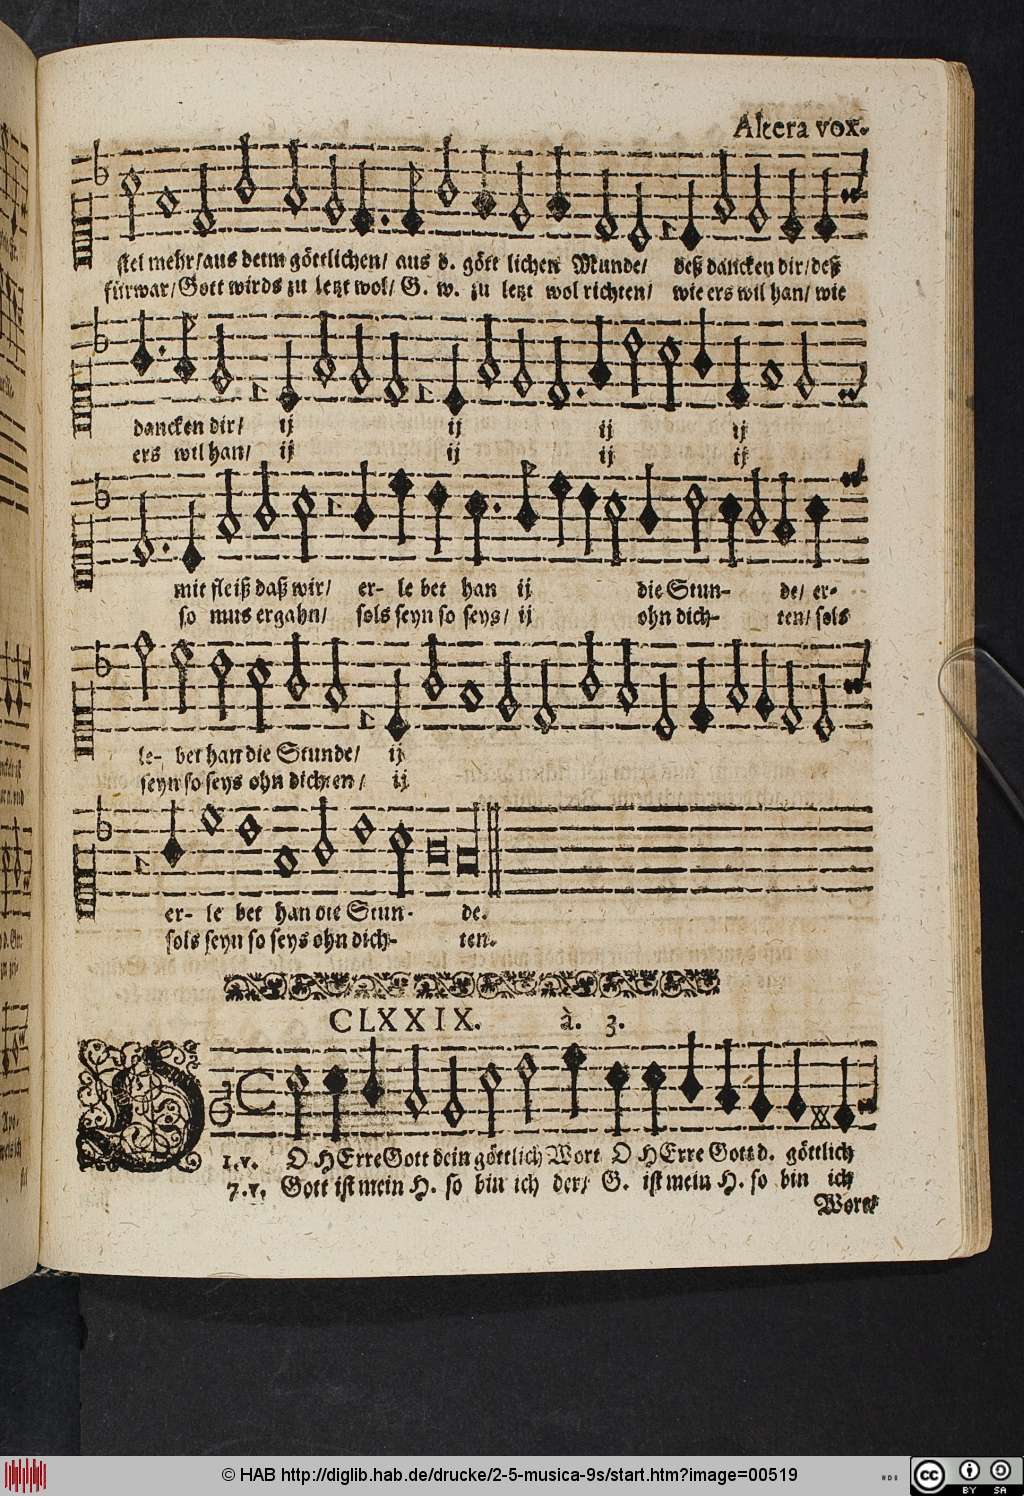 Altera vox.
stel mehr/aus deim göttlichen/ aus d. gött lichen Munde/ deß dancken dir/ deß
fürwar/Gott wirds zu letzt wol/ G. w. zu letzt wol richten/ wie ers wil han/ wie
dancken dir/ ij ij ij ij
ers wil han/ ij ij ij ij
mit fleiß daß wir/ er- le bet han ij die Stun- de/ er-
so mus ergahn/ sols seyn so seys/ ij ohn dich- ten/ sols
le- bet han die Stunde/ ij
seyn so seys ohn dichten/ ij
er- le bet han die Stun- de.
sols seyn so seys ohn dich- ten.
CLXXIX. à. 3.
O
1.v. O HErre Gott dein göttlich Wort O HErre Gott d. göttlich
7.v. Gott ist mein H. so bin ich der/ G. ist mein H. so bin ich
Wort
© HAB http://diglib.hab.de/drucke/2-5-musica-9s/start.htm?image=00519
cc BY SA